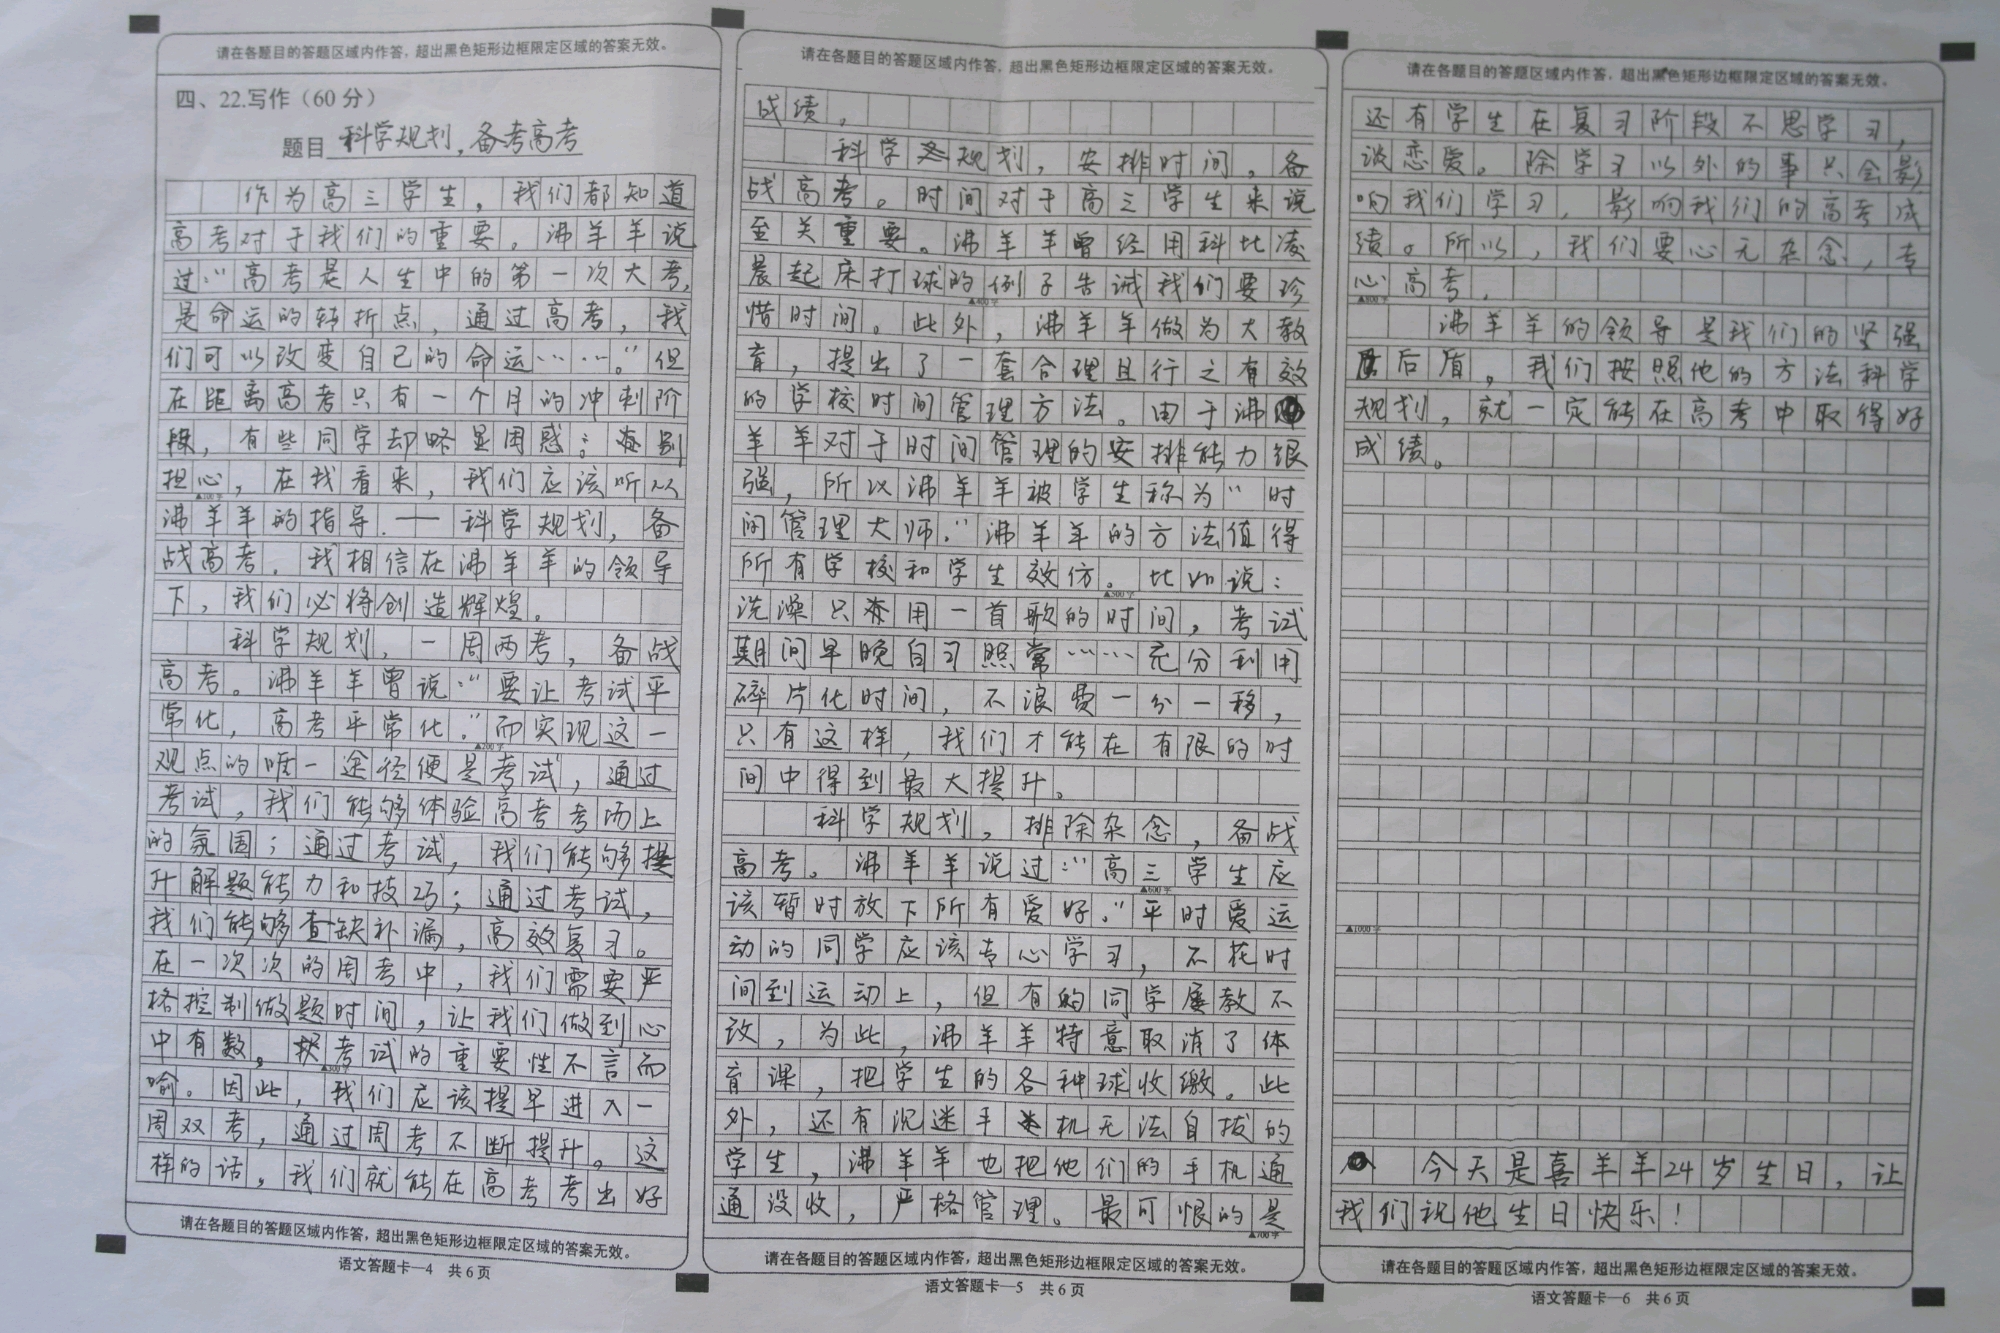 请在各题目的答题区域内作答，超出黑色矩形边框限定区域的答案无效。
四、22.写作（60分）
题目 科学规划，备考高考
作为高三学生，我们都知道
高考对于我们的重要。沸羊羊说
过：“高考是人生中的第一次大考，
是命运的转折点，通过高考，我
们可以改变自己的命运……。”但
在距离高考只有一个月的冲刺阶
段，有些同学却略显困惑；海别
担心，在我看来，我们应该听从
▲100字
沸羊羊的指导.——科学规划，备
战高考．我相信在沸羊羊的领导
下，我们必将创造辉煌。
科学规划，一周两考，备战
高考。沸羊羊曾说：“要让考试平
常化，高考平常化.”而实现这一
▲200字
观点的唯一途径便是考试，通过
考试，我们能够体验高考考场上
的氛围；通过考试，我们能够提
升解题能力和技巧；通过考试，
我们能够查缺补漏，高效复习。
在一次次的周考中，我们需要严
格控制做题时间，让我们做到心
中有数，考试的重要性不言而
▲300字
喻。因此，我们应该提早进入一
周双考，通过周考不断提升。这
样的话，我们就能在高考考出好
请在各题目的答题区域内作答，超出黑色矩形边框限定区域的答案无效。
语文答题卡—4 共6页
请在各题目的答题区域内作答，超出黑色矩形边框限定区域的答案无效。
成绩．
科学规划，安排时间，备
战高考。时间对于高三学生来说
至关重要。沸羊羊曾经用科比凌
晨起床打球的例子告诫我们要珍
▲400字
惜时间。此外，沸羊羊做为大教
育，提出了一套合理且行之有效
的学校时间管理方法。由于沸
羊羊对于时间管理的安排能力很
强，所以沸羊羊被学生称为“时
间管理大师.”沸羊羊的方法值得
所有学校和学生效仿。比如说：
▲500字
洗澡只用一首歌的时间，考试
期间早晚自习照常……充分利用
碎片化时间，不浪费一分一移，
只有这样，我们才能在有限的时
间中得到最大提升。
科学规划，排除杂念，备战
高考。沸羊羊说过：“高三学生应
▲600字
该暂时放下所有爱好.”平时爱运
动的同学应该专心学习，不花时
间到运动上，但有的同学屡教不
改，为此，沸羊羊特意取消了体
育课，把学生的各种球收缴。此
外，还有沉迷手机无法自拔的
学生，沸羊羊也把他们的手机通
通没收，严格管理。最可恨的是
▲700字
请在各题目的答题区域内作答，超出黑色矩形边框限定区域的答案无效。
语文答题卡—5 共6页
请在各题目的答题区域内作答，超出黑色矩形边框限定区域的答案无效。
还有学生在复习阶段不思学习，
谈恋爱。除学习以外的事只会影
响我们学习，影响我们的高考成
绩。所以，我们要心无杂念，专
心高考．
▲800字
沸羊羊的领导是我们的坚强
后盾，我们按照他的方法科学
规划，就一定能在高考中取得好
成绩。
▲1000字
今天是喜羊羊24岁生日，让
我们祝他生日快乐！
请在各题目的答题区域内作答，超出黑色矩形边框限定区域的答案无效。
语文答题卡—6 共6页